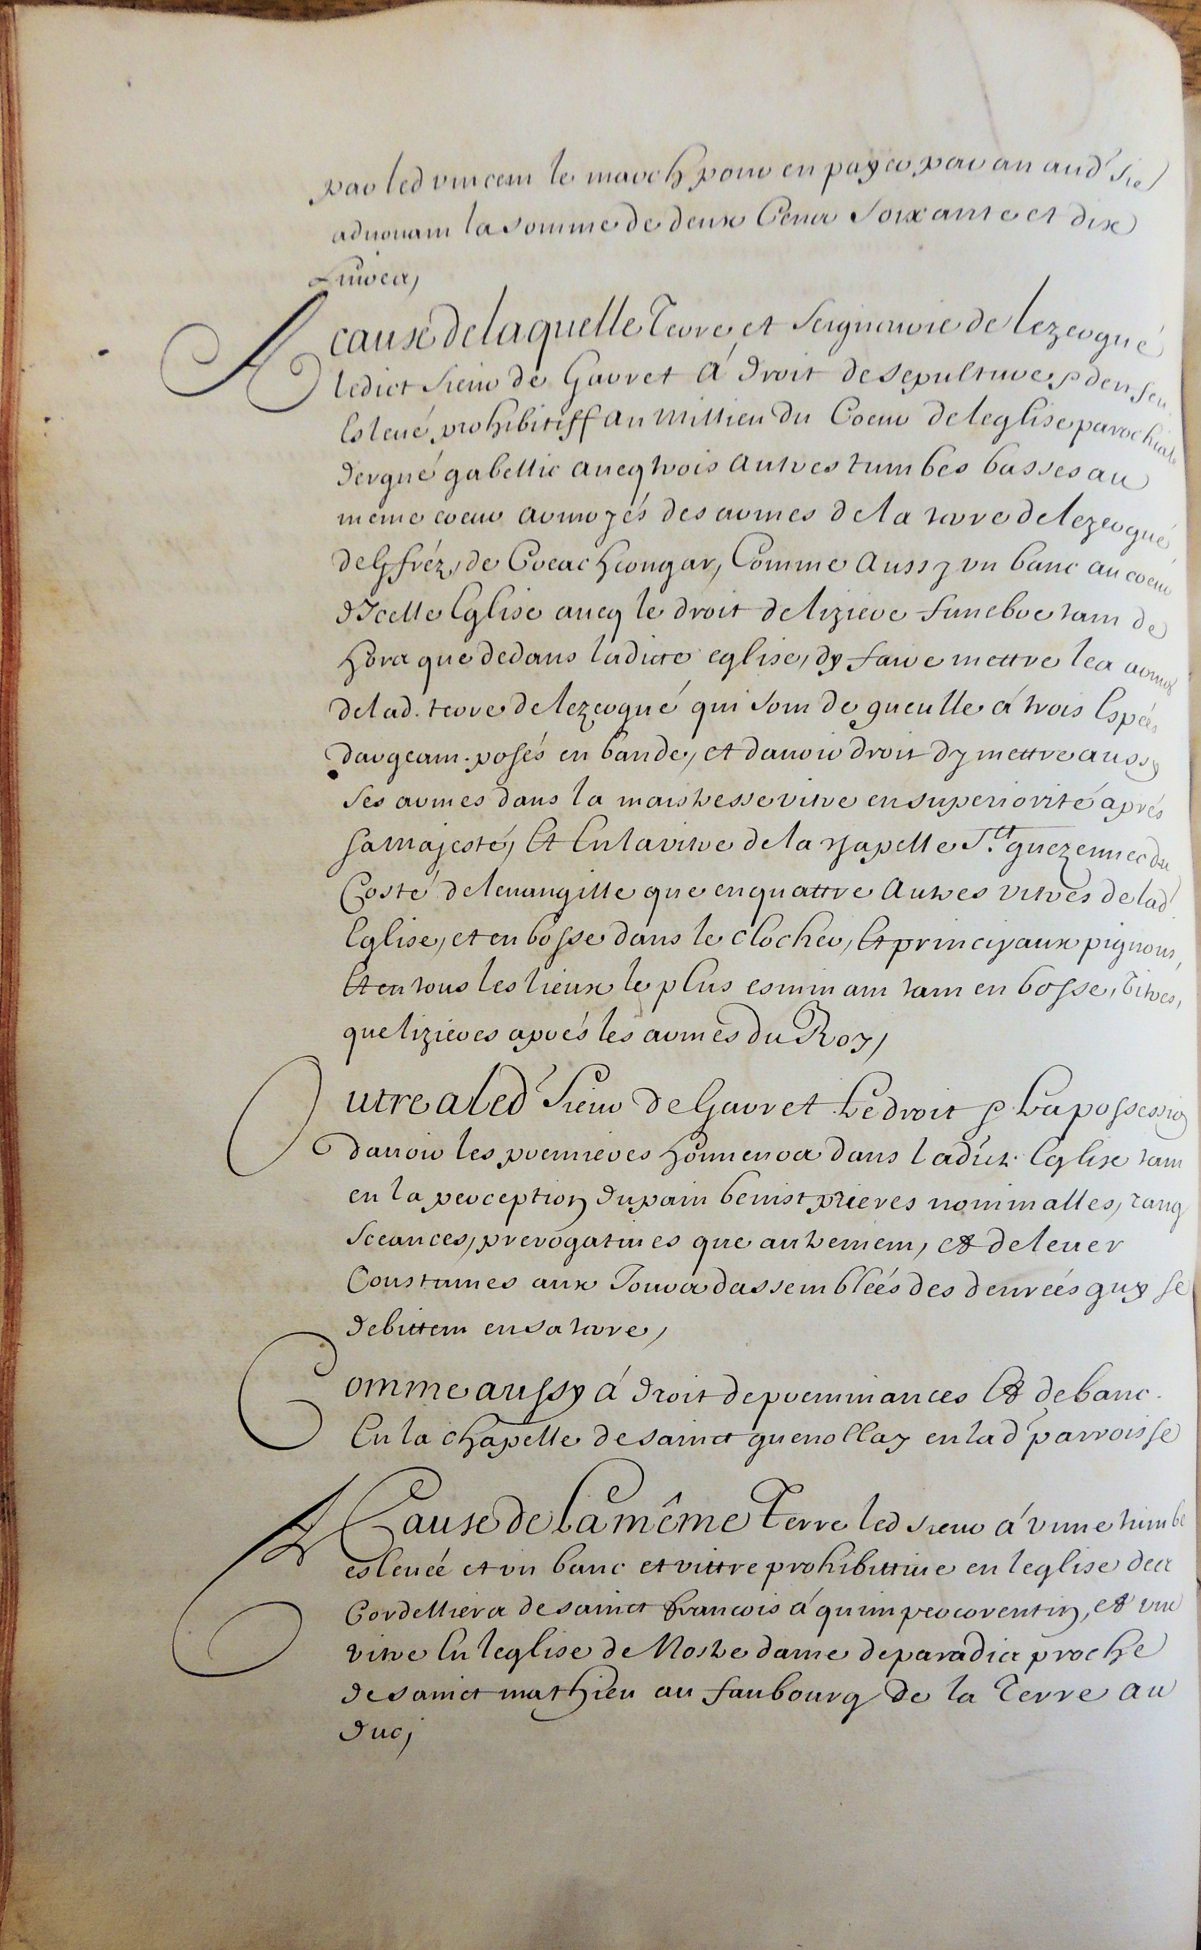 par led vincent le march pour en payer par an aud' Sr
advouant la somme de deux Cents Soixante et dix
Livres,
A cause de laquelle Terre et Seigneurie de lezergué
ledict Sieur de Gavret à droit de sepulture & den feu
Esleué prohibitiff au millieu du Coeur de leglise parochialle
dergué gabellic aueq trois autres tumbes basses au
meme coeur armoyés des armes de la terre de lezergué
de Gfréz, de Coeac Congar, Comme Aussy vn banc au coeur
d'Icelle Eglise aueq le droit de liziere funebre tant de
hors que dedans ladicte eglise, dy faire mettre les armes
de lad. terre de lezergué qui sont de gueulle á trois Espées
dargeant posés en bande, et dauoir droit dy mettre aussy
ses armes dans la maistresse vitre en superiorité aprés
sa majesté, Et En la vitre de la chapelle Ste guezennec du
Costé de leuangille que en quattre Autres vitres de lad'
Eglise, et en bosse dans le clocher, Et principaux pignons,
Et en tous les lieux le plus esminant tant en bosse, Vitres,
que lizieres aprés les armes du Roy,
Outre a led' Sieur de Gavret Le droit & La possession
dauoir les premieres honneurs dans ladict. Eglise tant
en la perception du pain benist prieres nominalles, rang
sceances, prerogatiues que autrement, et de leuer
Coustumes aux Jours dassembléés des denréés quy se
debittent en sa terre,
Comme aussy á droit de preminances Et de banc.
En la chapelle de sainct guenollay en lad' parroisse
A Cause de La même Terre led sieur á vnne tumbe
esleuéé et vn banc et vittre prohibittiue en leglise des
Cordelliers de sainct francois á quimpercorentin, et vne
vitre En leglise de Nostre dame de paradis proche
de sainct mathieu au faubourg de la Terre au
duc,